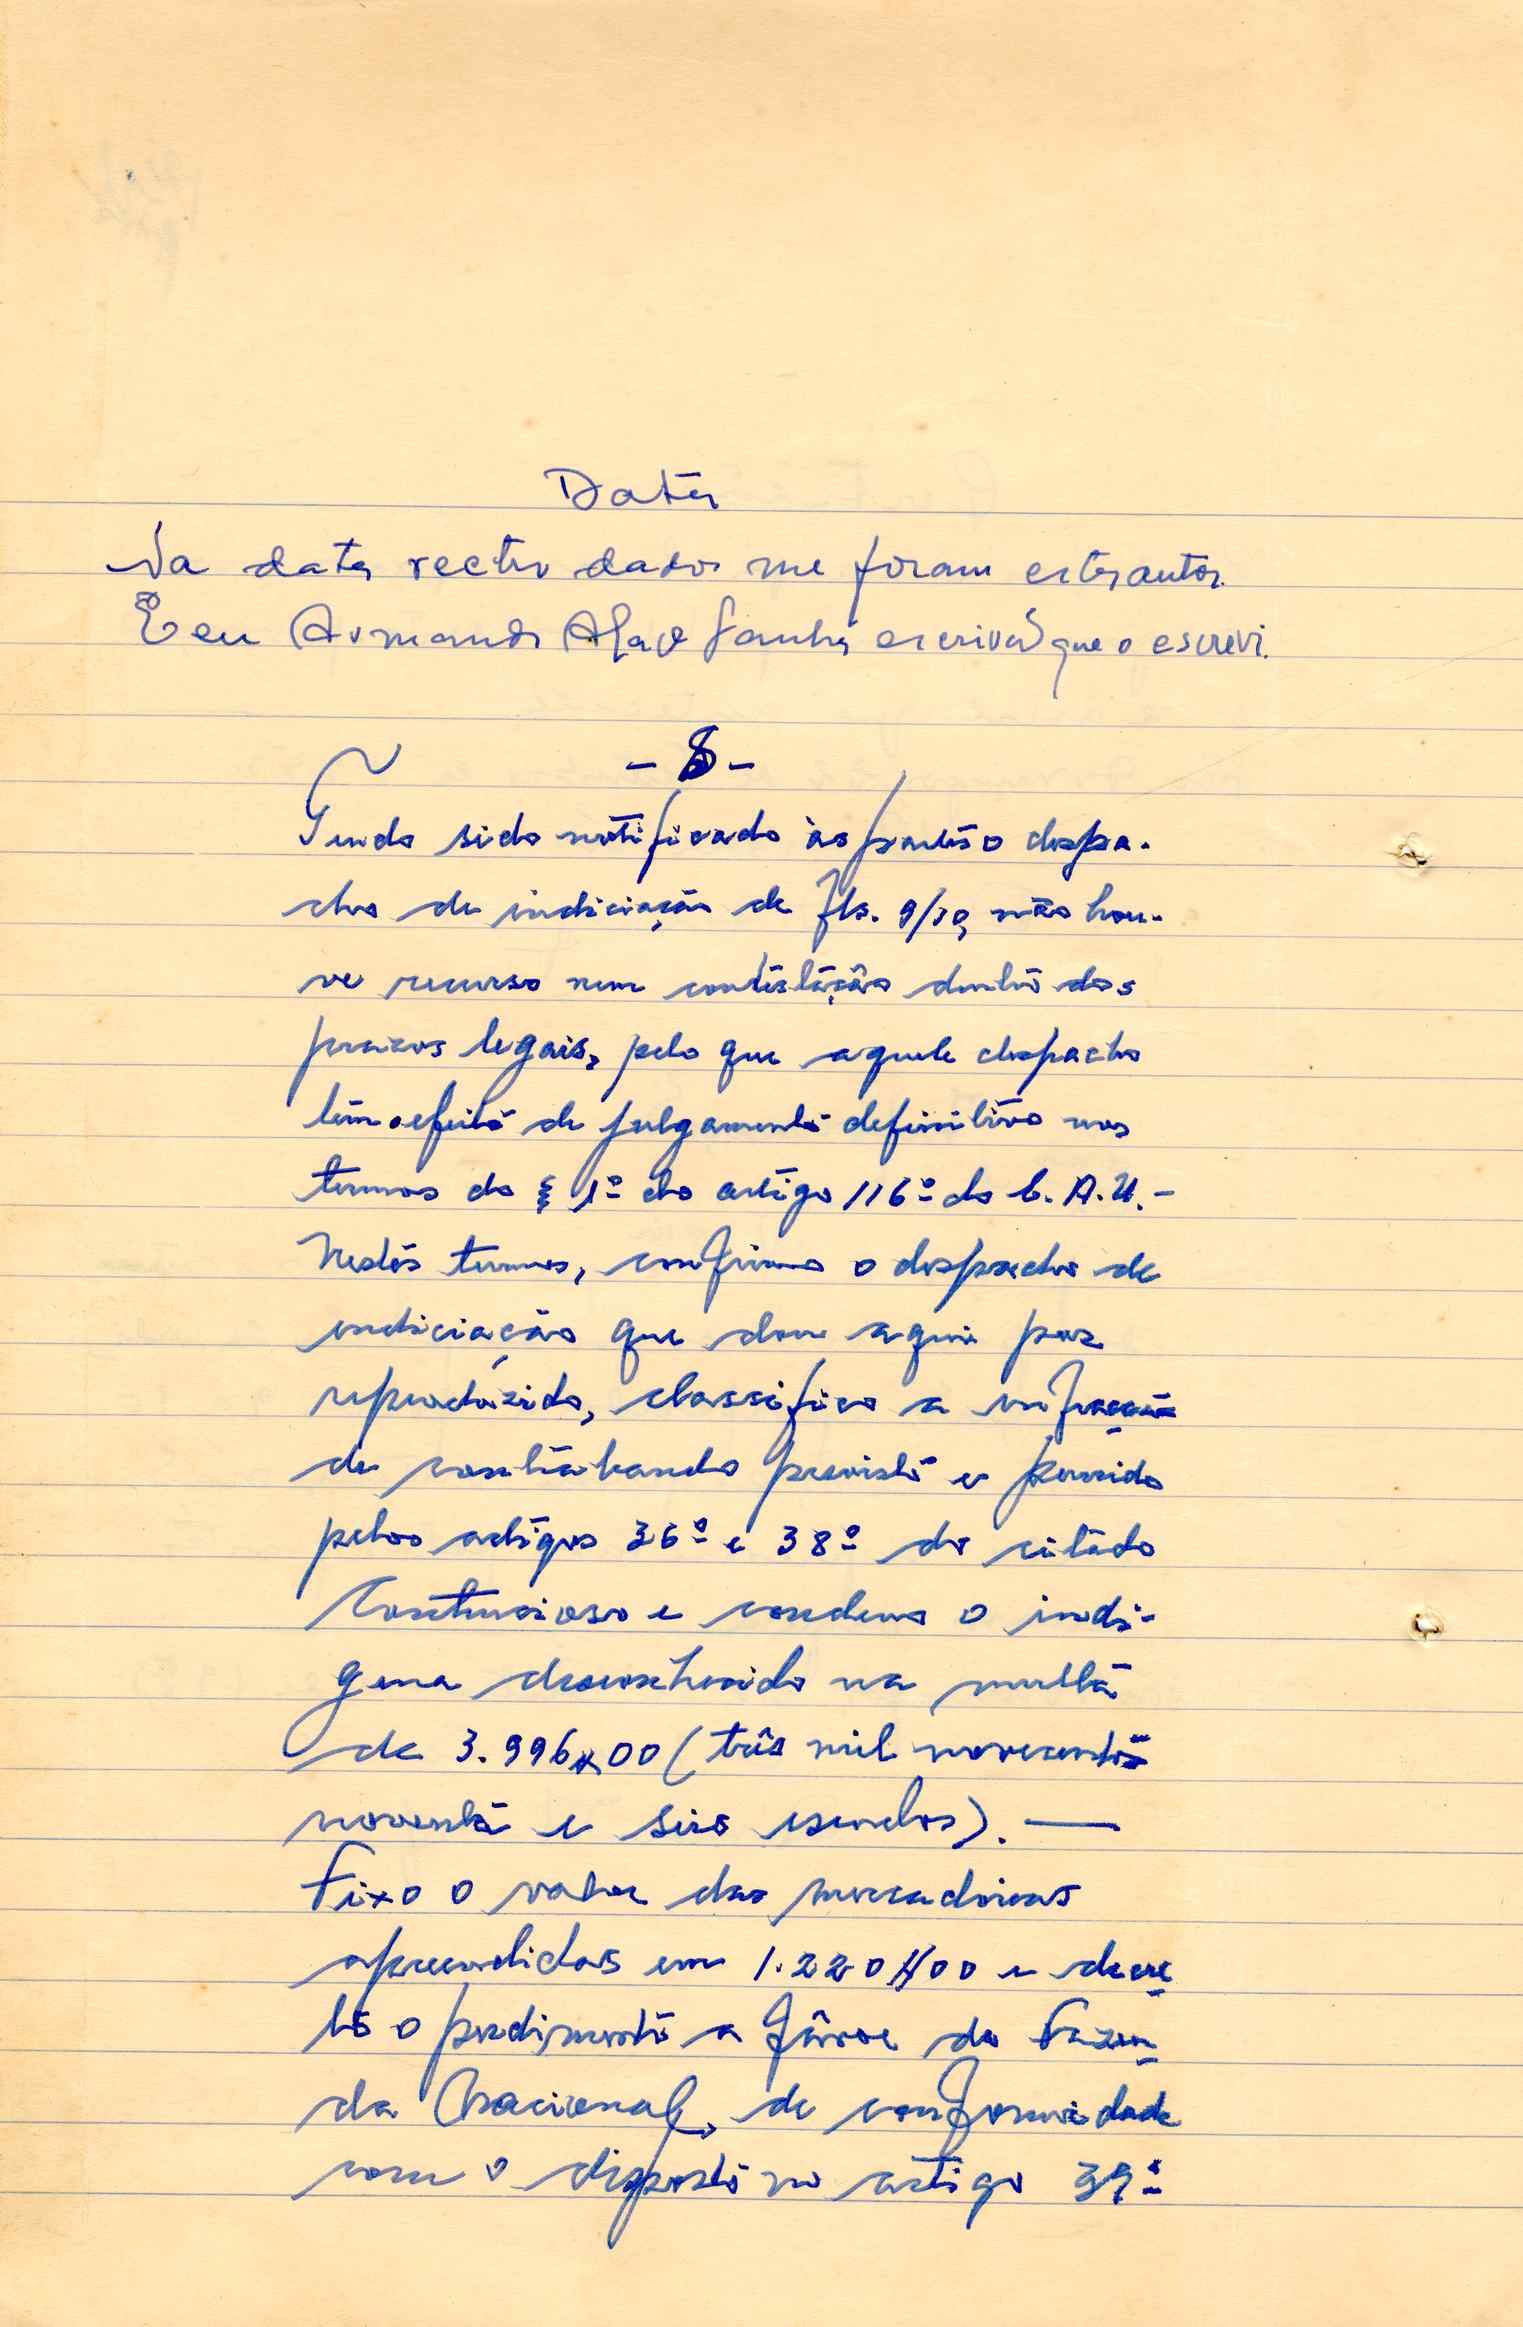 Data
Na data recto dados me foram estes autos.
E eu Armando escrivão que o escrevi.
Tendo sido notificado às partes o despa-
cho de indiciação de fls. 9/10, não hou-
ve recurso nem contestação dentro dos
prazos legais, pelo que aquele despacho
tem o efeito de julgamento definitivo nos
termos do § 1º do artigo 116º do C. A. U. -
Nestes termos, confirmo o despacho de
indiciação que dou aqui por
reproduzido, classifico a infracção
de contrabando previsto e punido
pelos artigos 36º e 38º do citado
Contencioso e condeno o indí-
gena desconhecido na multa
de 3.996$00 (três mil novecentos
noventa e seis escudos). —
Fixo o valor das mercadorias
apreendidas em 1.220$00 e decre
to o perdimento a favor da Fazen
da Nacional, de conformidade
com o disposto no artigo 39º